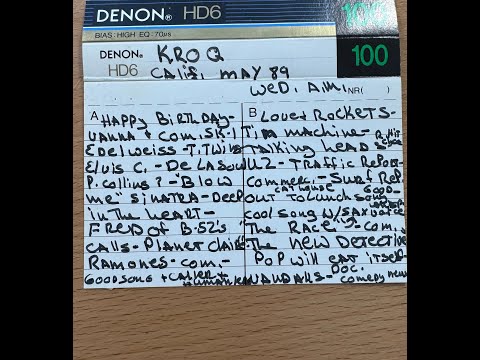 DENON HD6
BIAS: HIGH EQ: 70μs
DENON HD6 100
KROQ
Calif. MAY 89
WED. A.M.
NR( )
A HAPPY BIRTHDAY-
VANNA + COM. SK-1
Edelweiss - T. Twins
Elvis C. - De La Soul
P. Collins? - "BLOW
me" SINATRA - Deep
in the HEART -
FRED of B-52's
calls - Planet Claire
RAMONES - com. -
GOOD SONG + CALLER +
B Love + ROCKETS -
Tim machine -
TALKING HEADS
U2 - TRAFFIC Report
Commerc. - SURF Rep.
CAT HOUSE
OUT TO LUNCH SONG
GOOD -
COOL SONG W/SAX
"The RACE"? - com.
"The NEW Detective
POP WILL EAT ITSELF
VANDALS - Doc.
comedy news